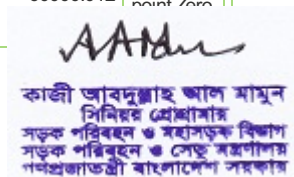 point Zero
কাজী আবদুল্লাহ আল মামুন
সিনিয়র প্রোগ্রামার
সড়ক পরিবহন ও মহাসড়ক বিভাগ
সড়ক পরিবহন ও সেতু মন্ত্রণালয়
গণপ্রজাতন্ত্রী বাংলাদেশ সরকার